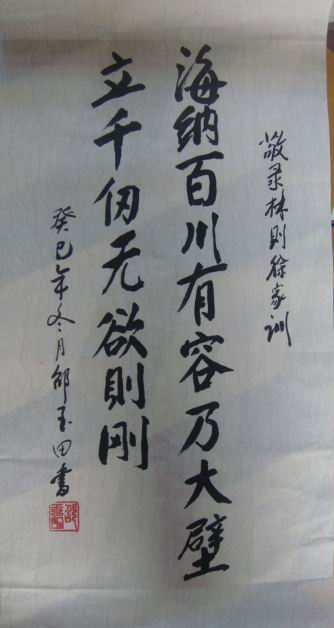 敬录林则徐家训
海纳百川有容乃大壁
立千仞无欲则刚
癸巳年冬月邵玉田书